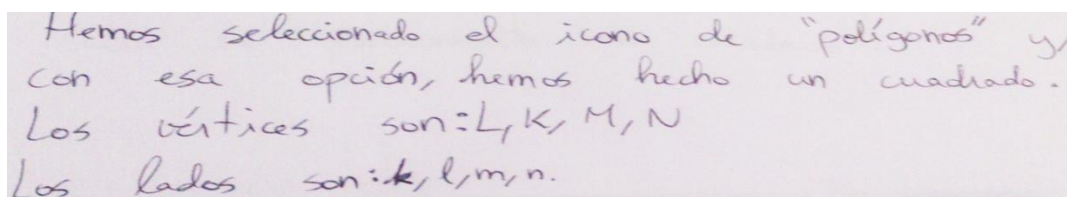 Hemos seleccionado el icono de "polígonos" y,
con esa opción, hemos hecho un cuadrado.
Los vértices son: L, K, M, N
Los lados son: k, l, m, n.